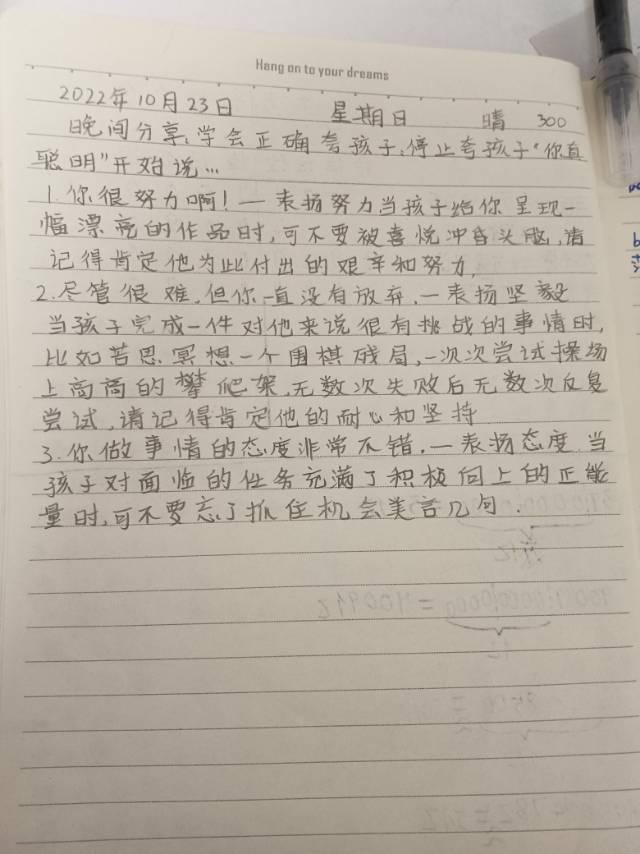 Hang on to your dreams
2022年10月23日 星期日 晴 300
晚间分享:学会正确夸孩子,停止夸孩子"你真
聪明"开始说…
1.你很努力啊!—表扬努力当孩子给你呈现一
幅漂亮的作品时,可不要被喜悦冲昏头脑,请
记得肯定他为此付出的艰辛和努力,
2.尽管很难,但你一直没有放弃,—表扬坚毅
当孩子完成一件对他来说很有挑战的事情时,
比如苦思冥想一个围棋残局,一次次尝试操场
上高高的攀爬架,无数次失败后无数次反复
尝试,请记得肯定他的耐心和坚持
3.你做事情的态度非常不错,—表扬态度.当
孩子对面临的任务充满了积极向上的正能
量时,可不要忘了抓住机会美言几句.